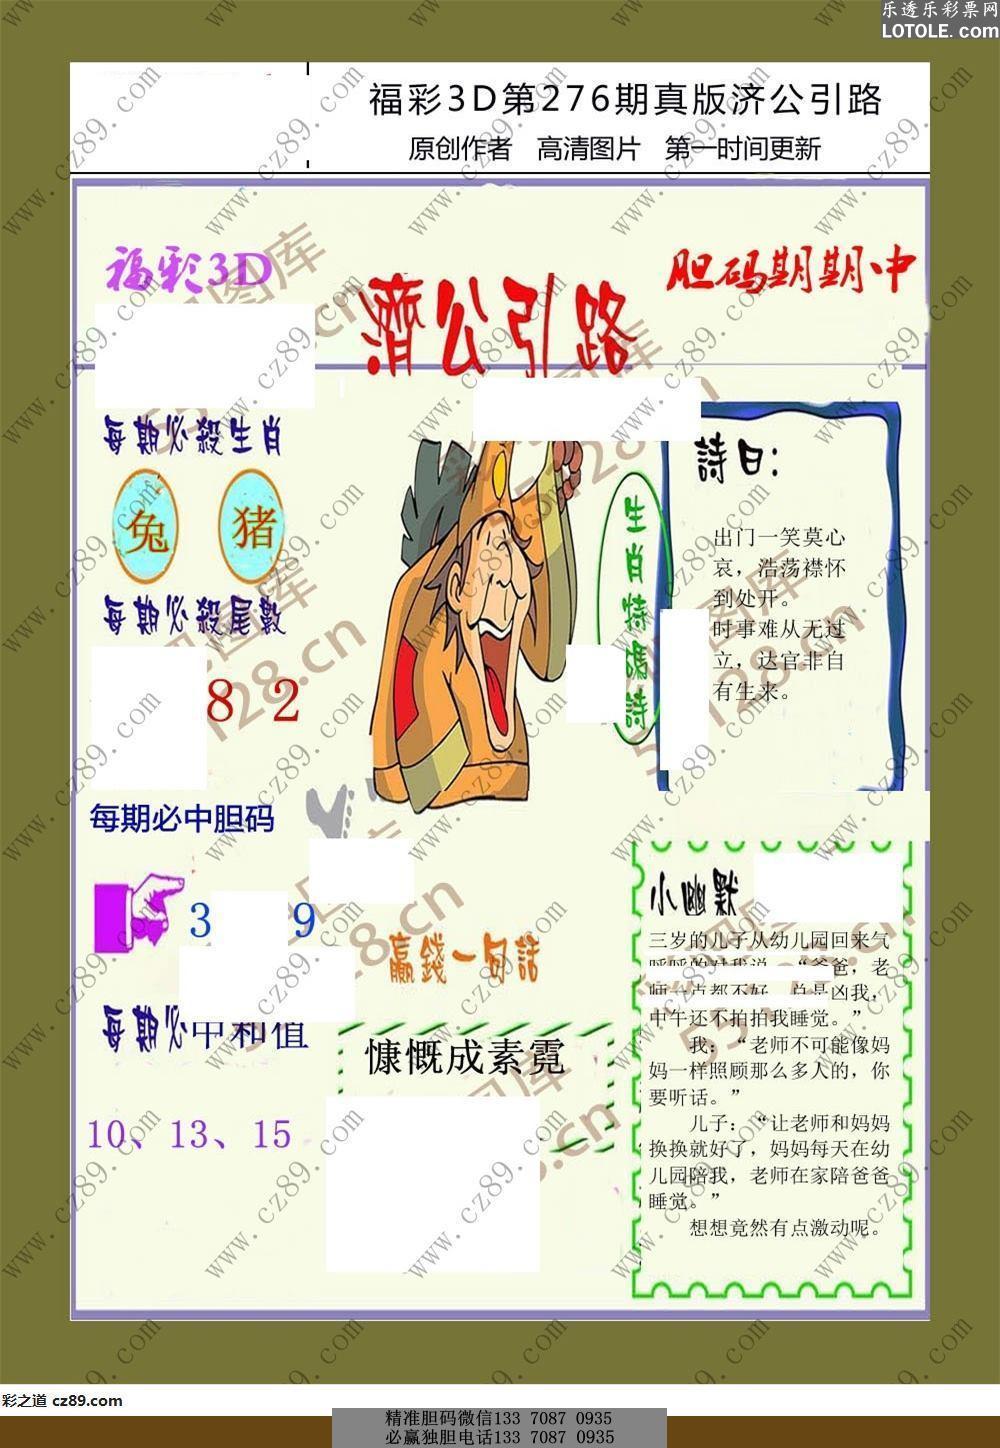 乐透乐彩票网
LOTOLE.com
福彩3D第276期真版济公引路
原创作者 高清图片 第一时间更新
福彩3D
胆码期期中
濟公引路
每期必殺生肖
兔 猪
每期必殺尾數
8 2
每期必中胆码
3 9
每期必中和值
10、13、15
生肖特碼詩
詩曰:
出门一笑莫心
哀，浩荡襟怀
到处开。
时事难从无过
立，达官非自
有生来。
贏錢一句話
慷慨成素霓
小幽默
三岁的儿子从幼儿园回来气
呼呼的对我说：“爸爸，老
师一点都不好，总是凶我，
中午还不拍拍我睡觉。”
我：“老师不可能像妈
妈一样照顾那么多人的，你
要听话。”
儿子：“让老师和妈妈
换换就好了，妈妈每天在幼
儿园陪我，老师在家陪爸爸
睡觉。”
想想竟然有点激动呢。
www.cz89.com
55128.cn
彩之道 cz89.com
精准胆码微信133 7087 0935
必赢独胆电话133 7087 0935